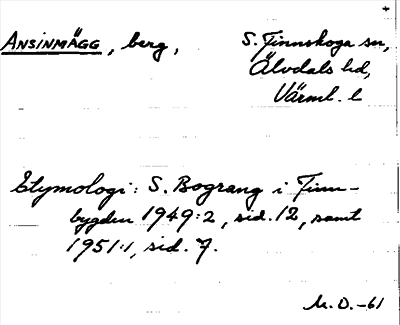 ANSINMÄGG, berg, S. Finnskoga sn,
Älvdals hd,
Värml. l
Etymologi: S. Bograng i Finn-
bygden 1949:2, sid. 12, samt
1951:1, sid. 7.
M.O.-61